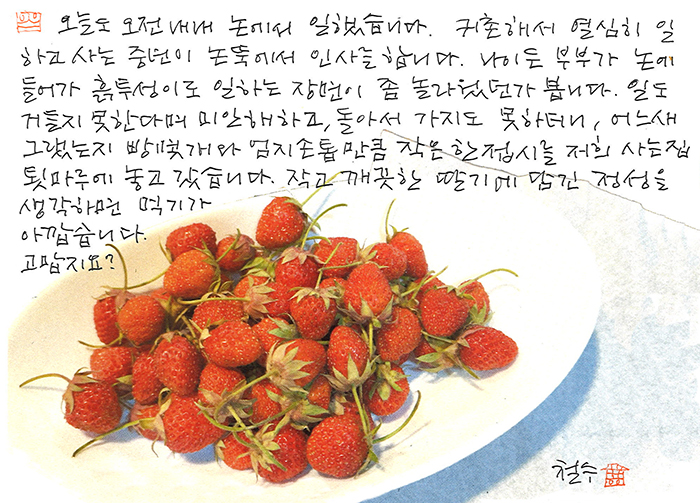 오늘도 오전내내 논에서 일했습니다. 귀촌해서 열심히 일
하고 사는 중년이 논뚝에서 인사를 합니다. 나이든 부부가 논에
들어가 흙투성이로 일하는 장면이 좀 놀라웠던가 봅니다. 일도
거들지 못한다며 미안해하고, 돌아서 가지도 못하더니, 어느새
그랬는지 빵 몇개와 엄지손톱만큼 작은 한접시를 저희 사는집
툇마루에 놓고 갔습니다. 작고 깨끗한 딸기에 담긴 정성을
생각하면 먹기가
아깝습니다.
고맙지요?
철수